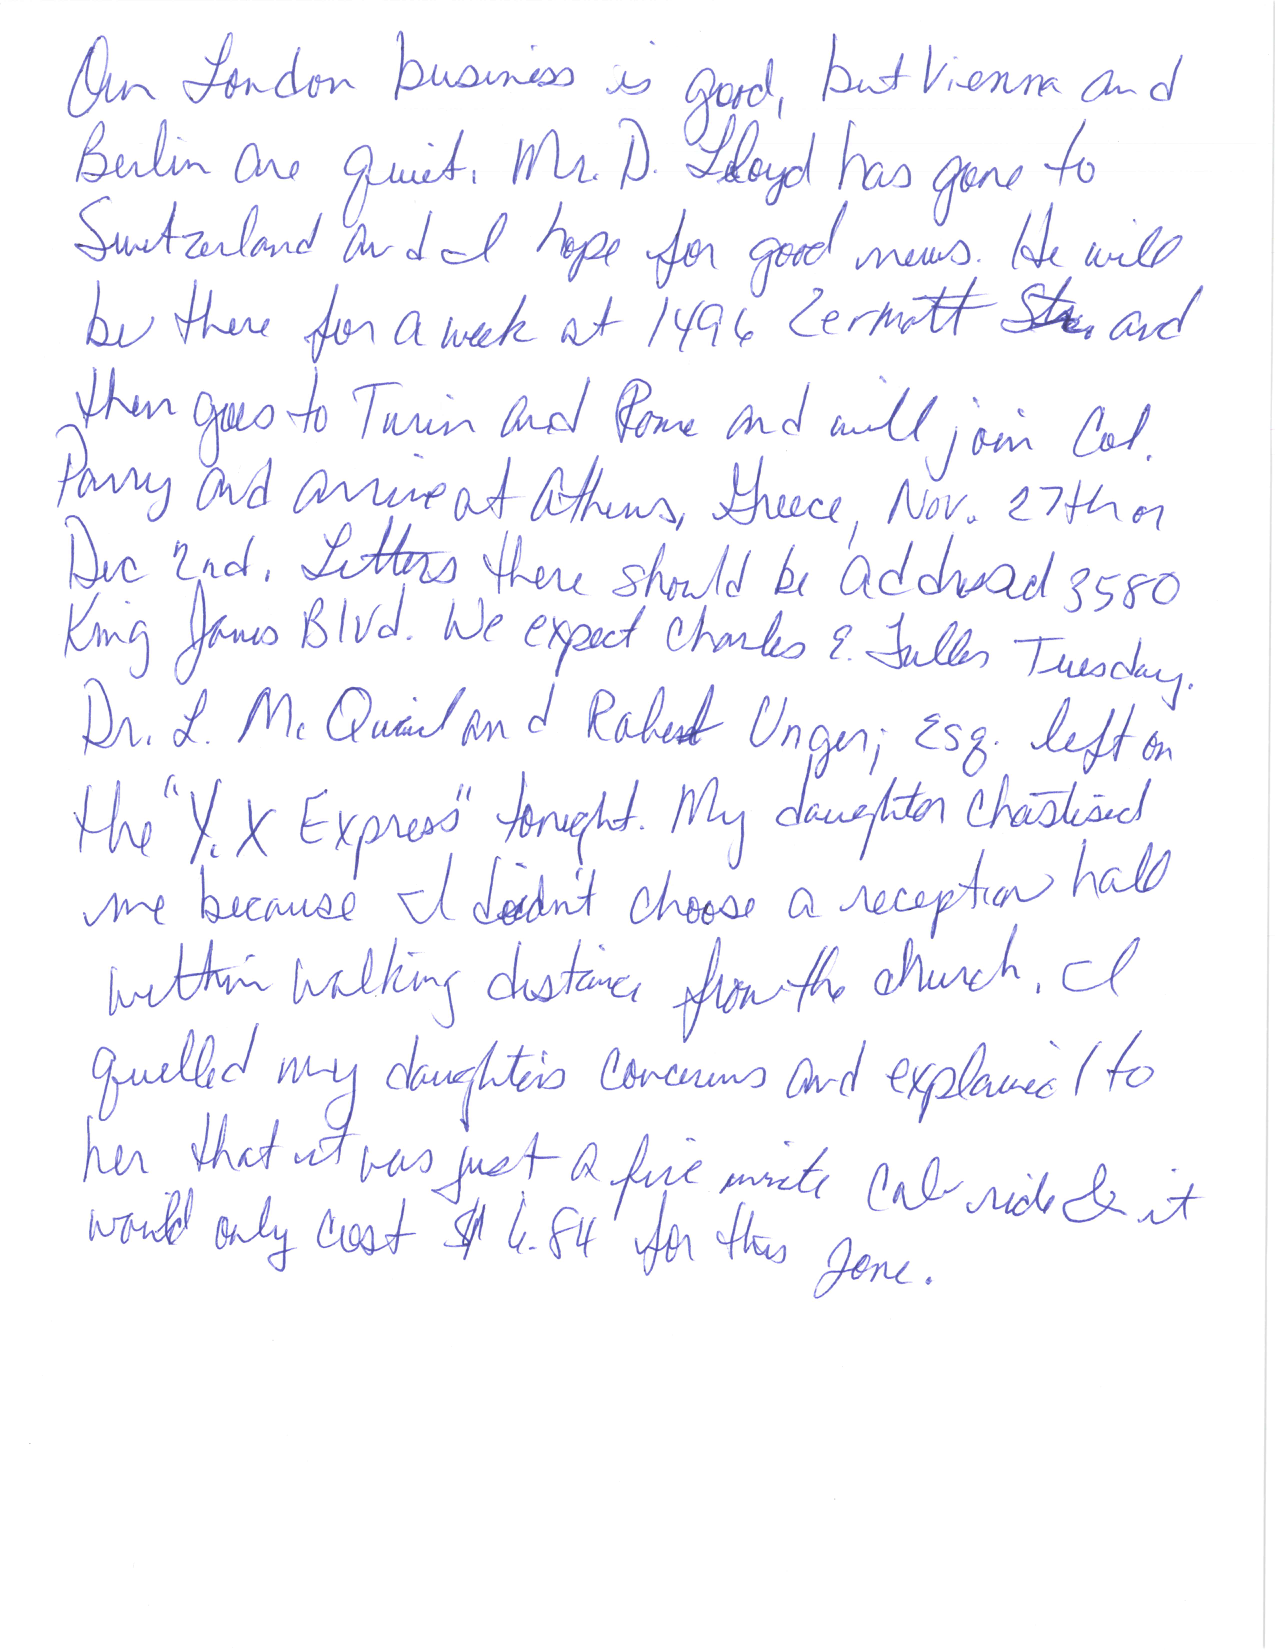 Our London business is good, but Vienna and
Berlin are quiet. Mr. D. Lloyd has gone to
Switzerland and I hope for good news. He will
be there for a week at 1496 Zermott Str. and
then goes to Turin and Rome and will join Col.
Parry and arrive at Athens, Greece, Nov. 27th or
Dec 2nd. Letters there should be addressed 3580
King James Blvd. We expect Charles E. Fuller Tuesday.
Dr. L. Mc Quaid and Robert Unger, Esq. left on
the "Y. X Express" tonight. My daughter chastised
me because I didn't choose a reception hall
within walking distance from the church. I
quelled my daughter's concerns and explained to
her that it was just a five minute cab ride & it
would only cost $ 6.84 for this zone.